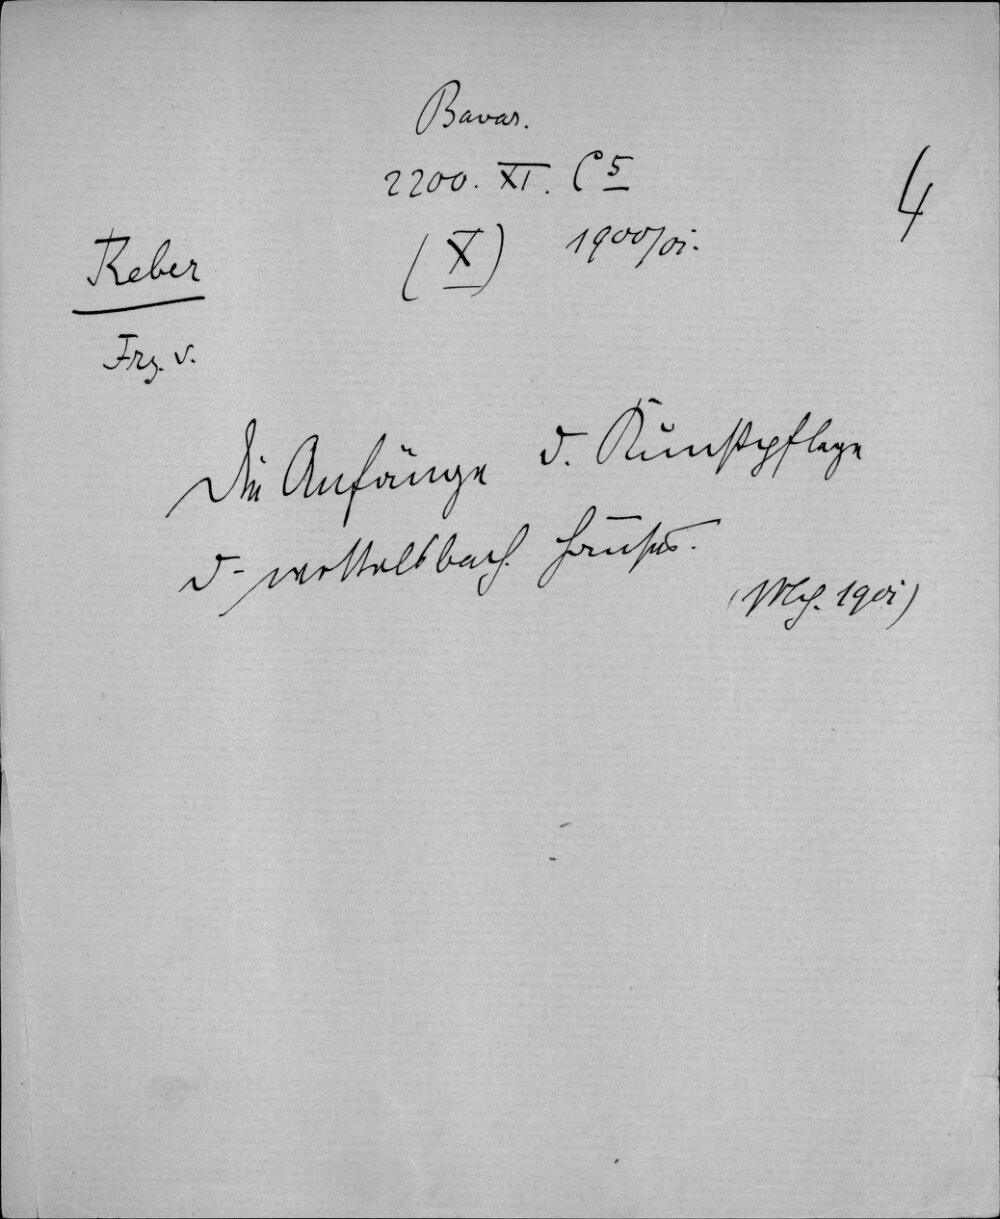 Bavar.
2200. XI. C 5
4
(X) 1900/01.
Reber
Frz. v.
Die Anfänge d. Kunstpflege
d. wittelsbach. Hauses.
(Mch. 1901)